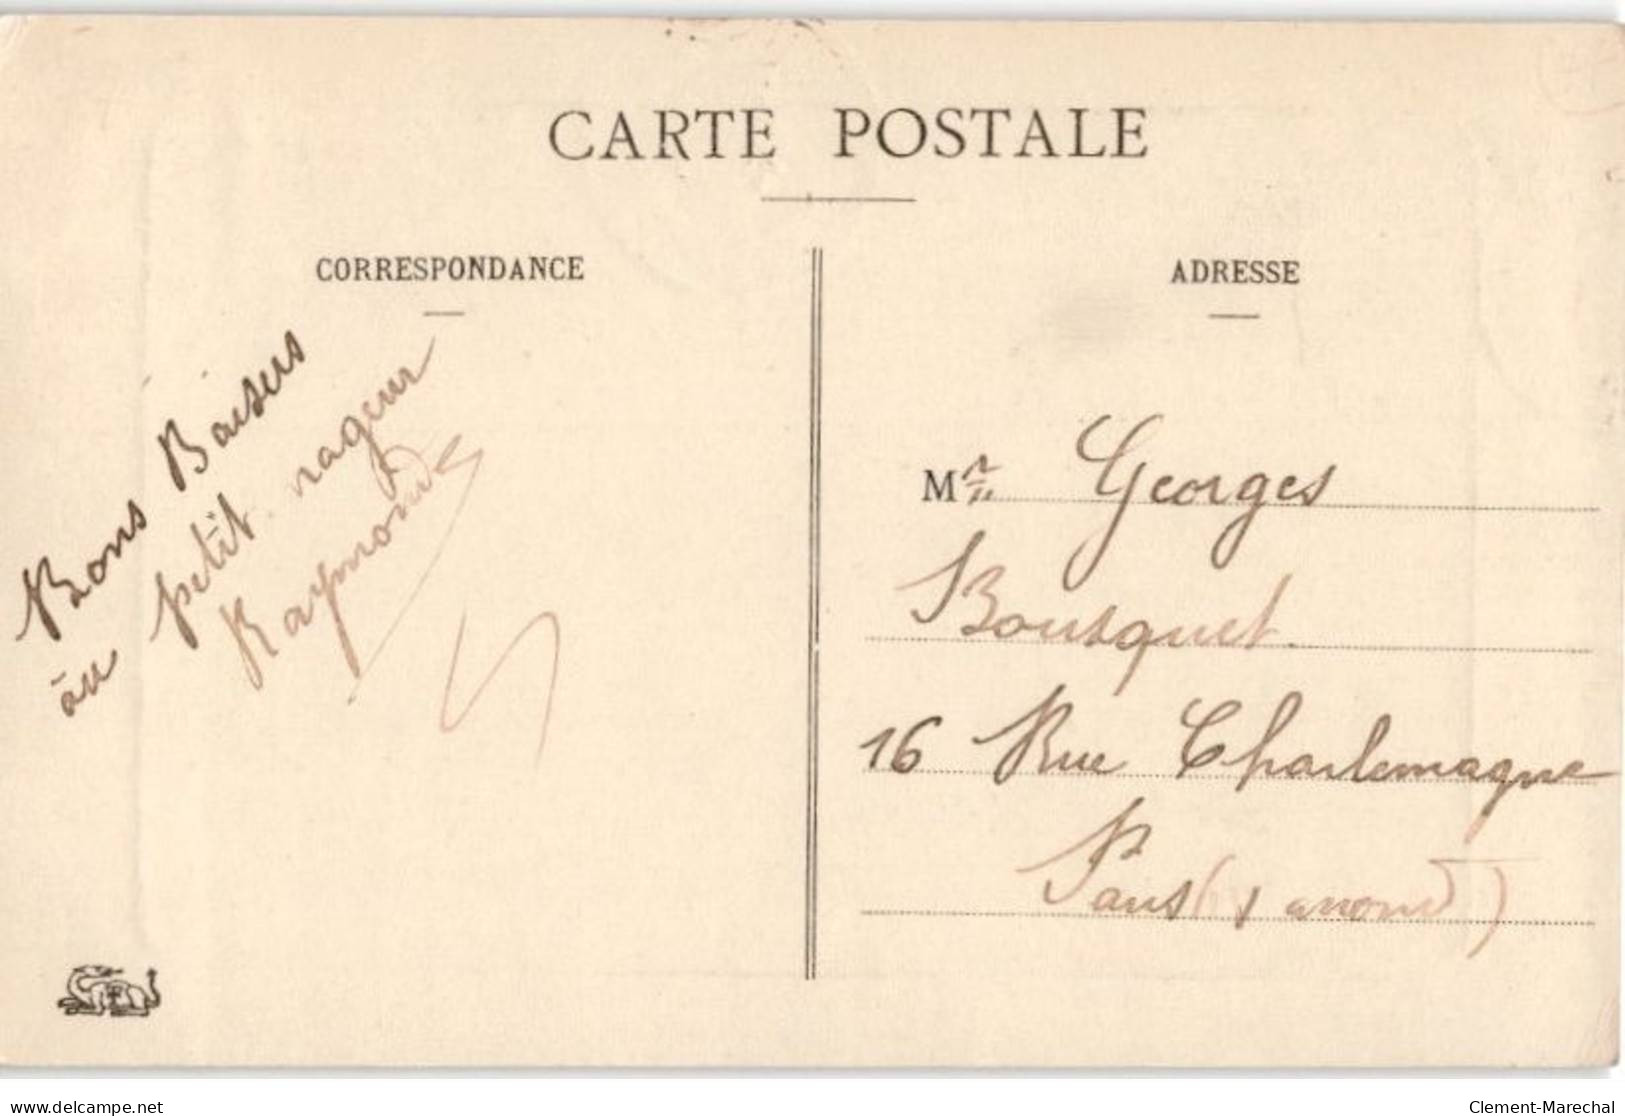 CARTE POSTALE
CORRESPONDANCE
Bons Baisers
au petit nageur
Raymonde
ADRESSE
Mr Georges
Bousquet
16 Rue Charlemagne
Paris ( arrond
delcampe.net
Clement-Marechal